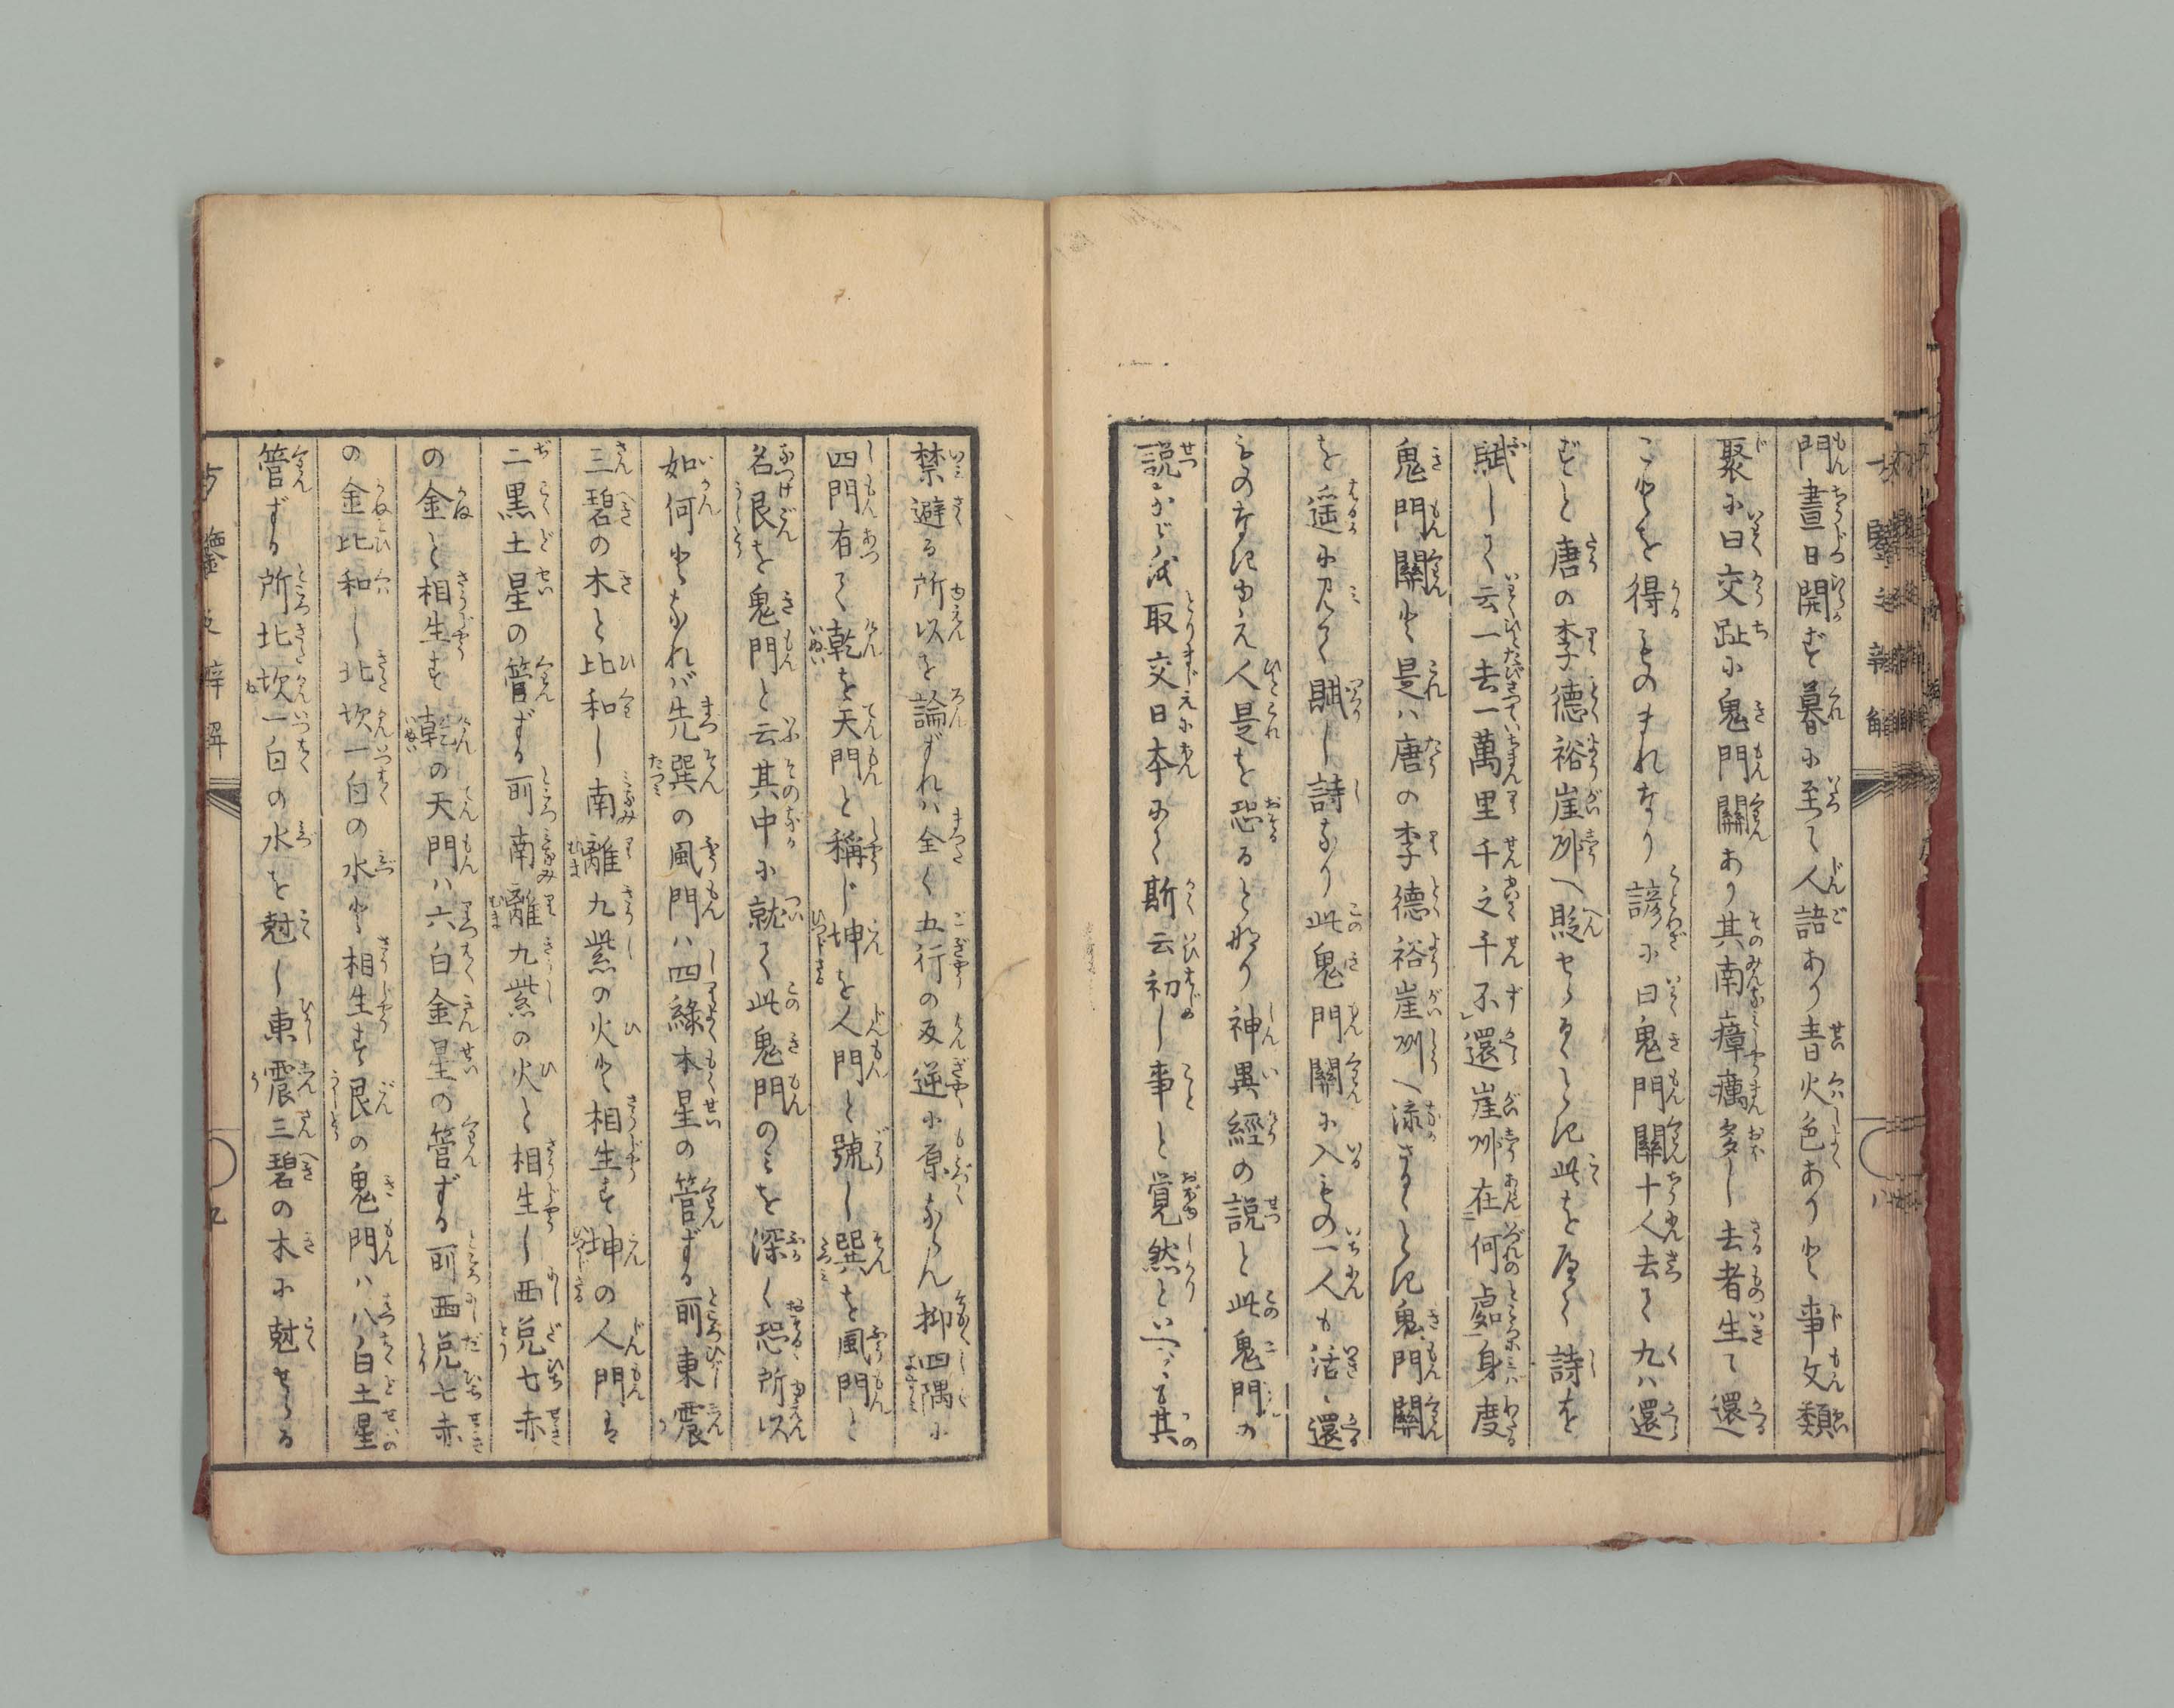 門晝日開ず暮に至て人語あり青火色ありと事文類
聚に曰交趾に鬼門關あり其南瘴癘多し去者生て還
ことを得るものまれなり諺に曰鬼門關十人去て九ハ還
ずと唐の李德裕崖州へ貶せらるゝとき此を度て詩を
賦して云一去一萬里千之千不還崖州在何處身度
鬼門關と是ハ唐の李德裕崖州へ流さるゝとき鬼門關
を遥に見て賦し詩なり此鬼門關に入もの一人も活て還
ものなきゆえ人是を恐ると也神異經の説と此鬼門の
説
取交日本にて斯云初し事と覚然といへども其
禁避る所以を論ずれハ全く五行の反逆に原ならん抑四隅に
四門有て乾を天門と稱じ坤を人門と號し巽を風門と
名艮を鬼門と云其中に就て此鬼門のミを深く恐所以
如何となれバ先巽の風門ハ四緑木星の管ずる所東震
三碧の木と比和し南離九紫の火と相生ず坤の人門は
二黒土星の管ずる所南離九紫の火と相生し西兌七赤
の金と相生ず乾の天門ハ六白金星の管ずる所西兌七赤
の金比和し北坎一白の水と相生ず艮の鬼門ハ八白土星
管ずる所北坎一白の水を尅し東震三碧の木に尅せらる